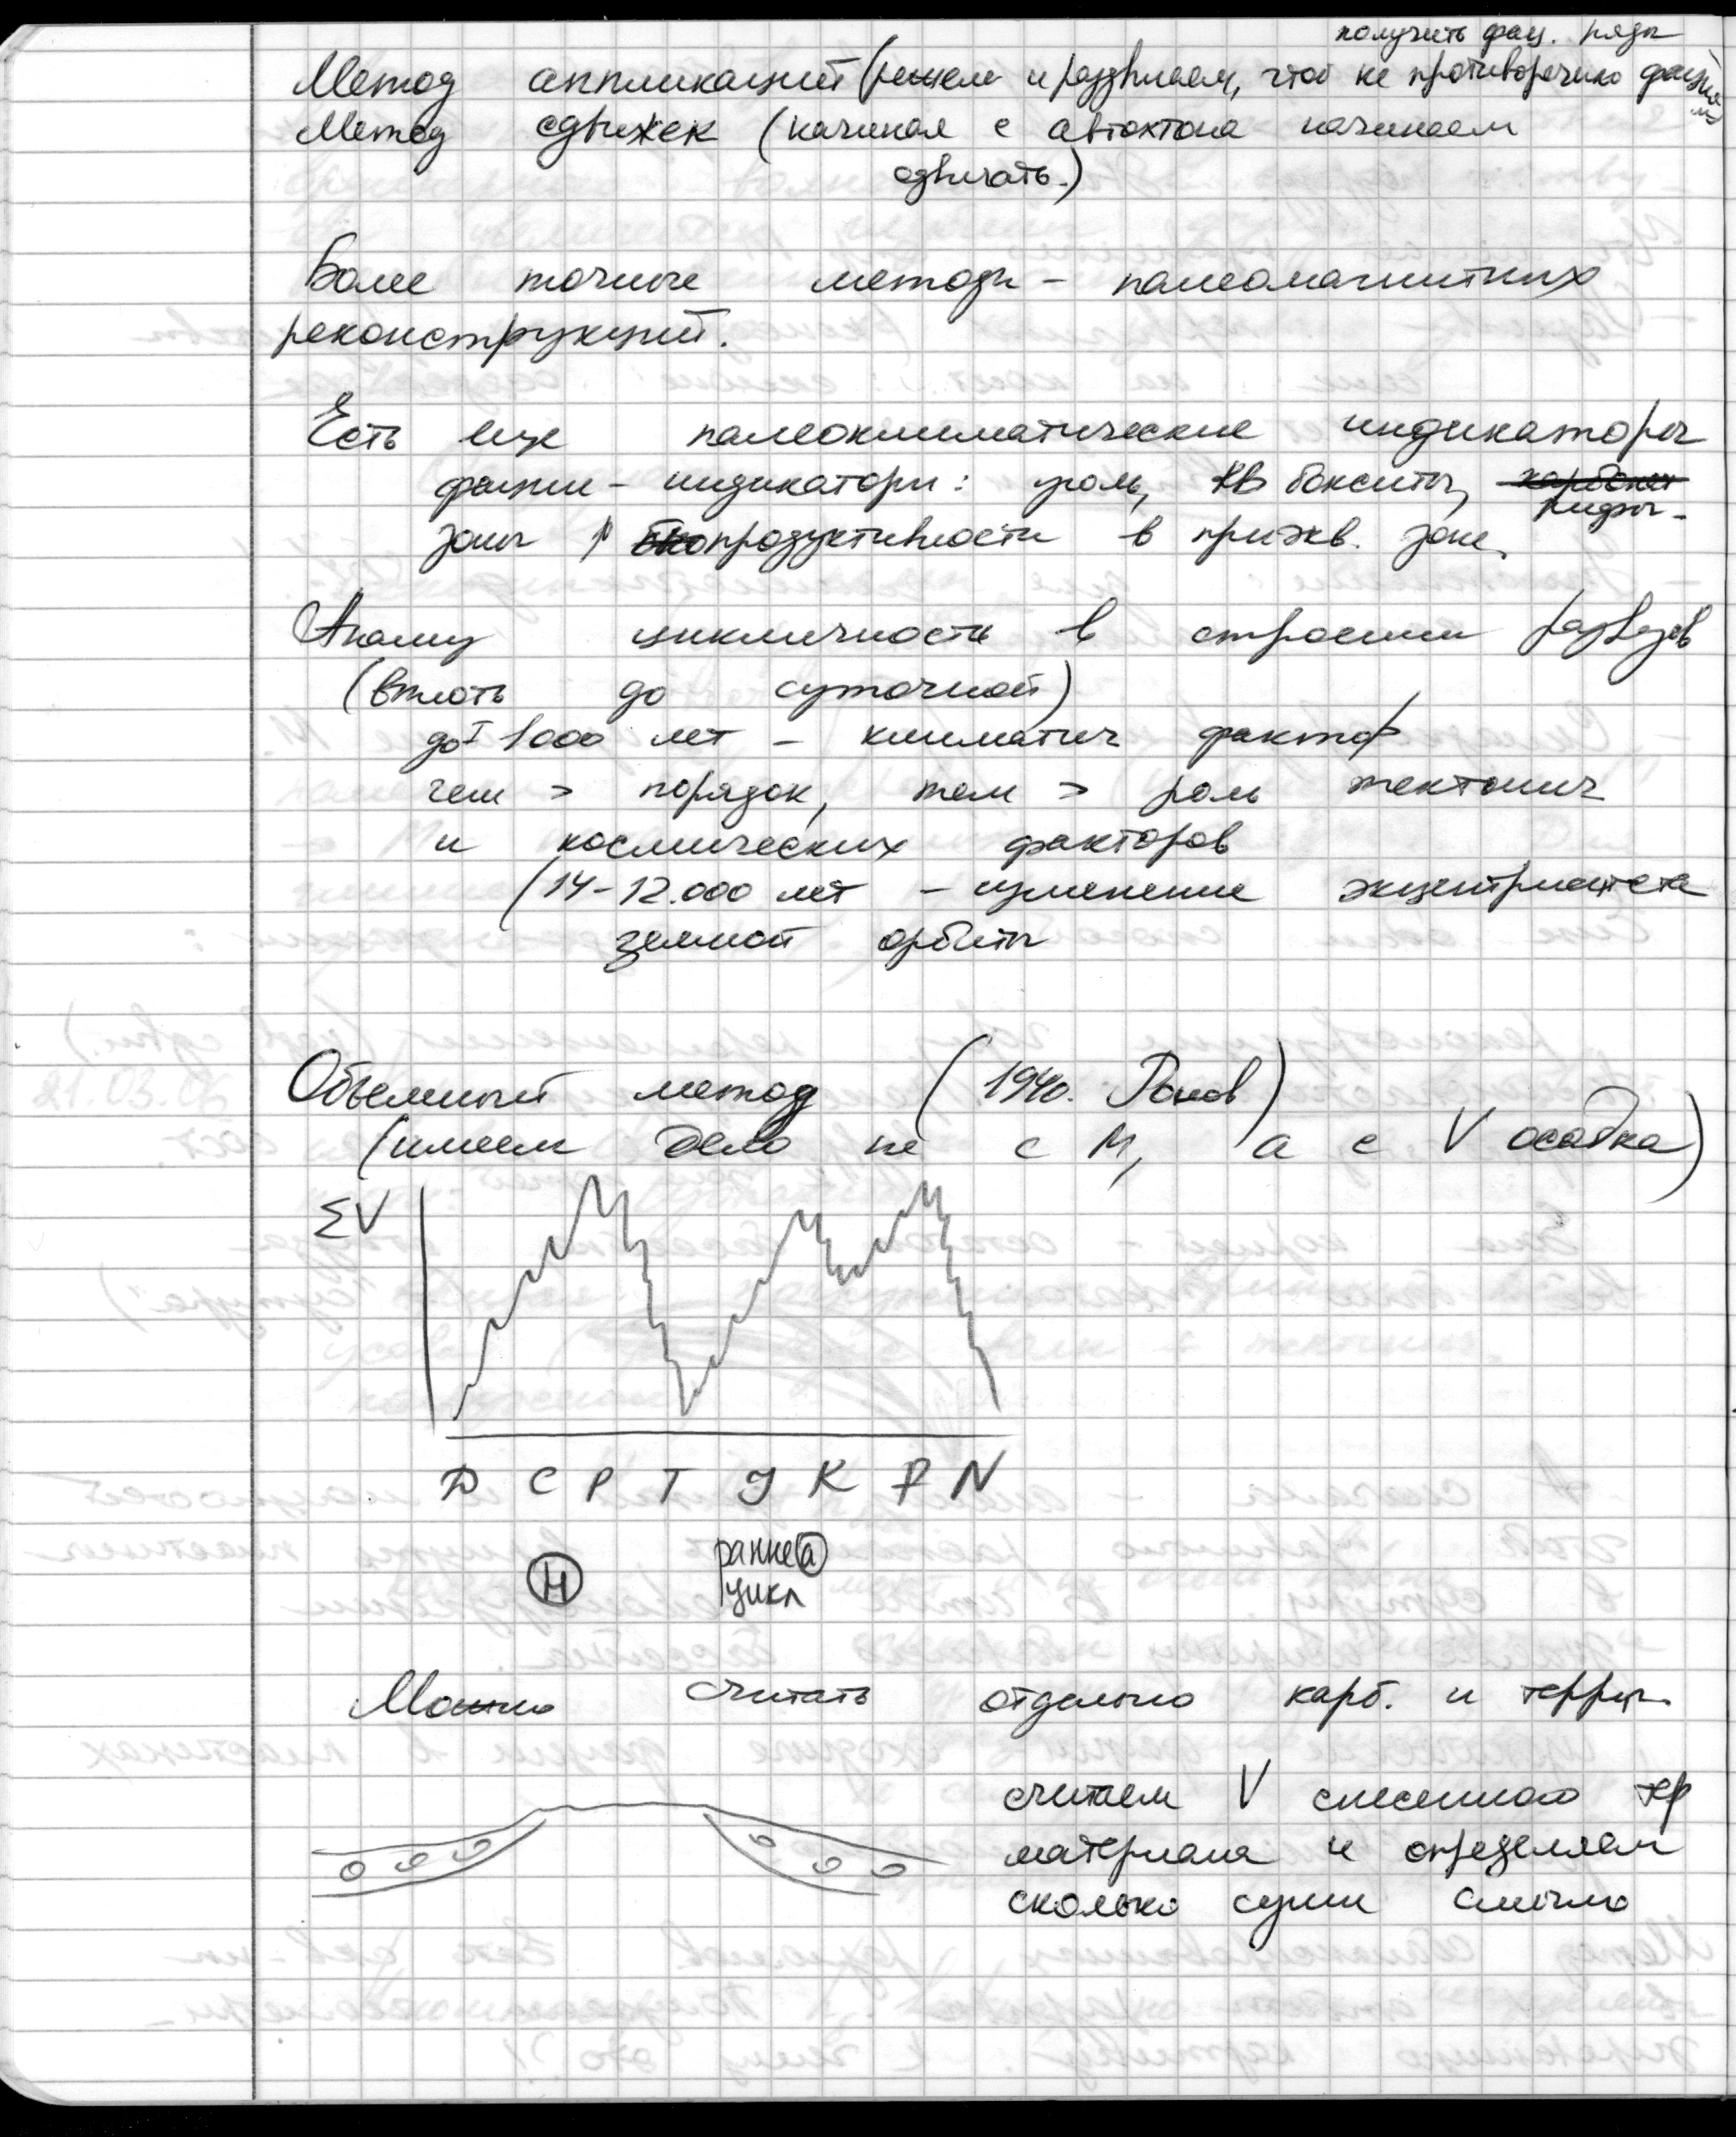 получить фац. ряды
Метод аппликаций (режем и раздвигаем, чтоб не противоречило фациям
Метод сдвижек (начиная с автохтона начинаем
сдвигать.)
Более точные методы – палеомагнитных
реконструкций.
Есть еще палеоклиматические индикаторы
фации – индикаторы: уголь, бокситы, рифы –
зоны ↑ продуктивности в приэкв. зоне.
Анализ цикличности в строении разрезов
(вплоть до суточной)
до 1000 лет – климатич фактор
чем > порядок, тем > роль тектонич
и космических факторов
(14–12.000 лет – изменение эксцентриситета
земной орбиты
Объемный метод (1940. Ронов)
(имеем дело не с М, а с V осадка)
ΣV
D C P T J K P N
Н
ранне а
цикл
Можно считать отдельно карб. и терриг.
считаем V снесенного тер
материала и определяем
сколько суши смыло